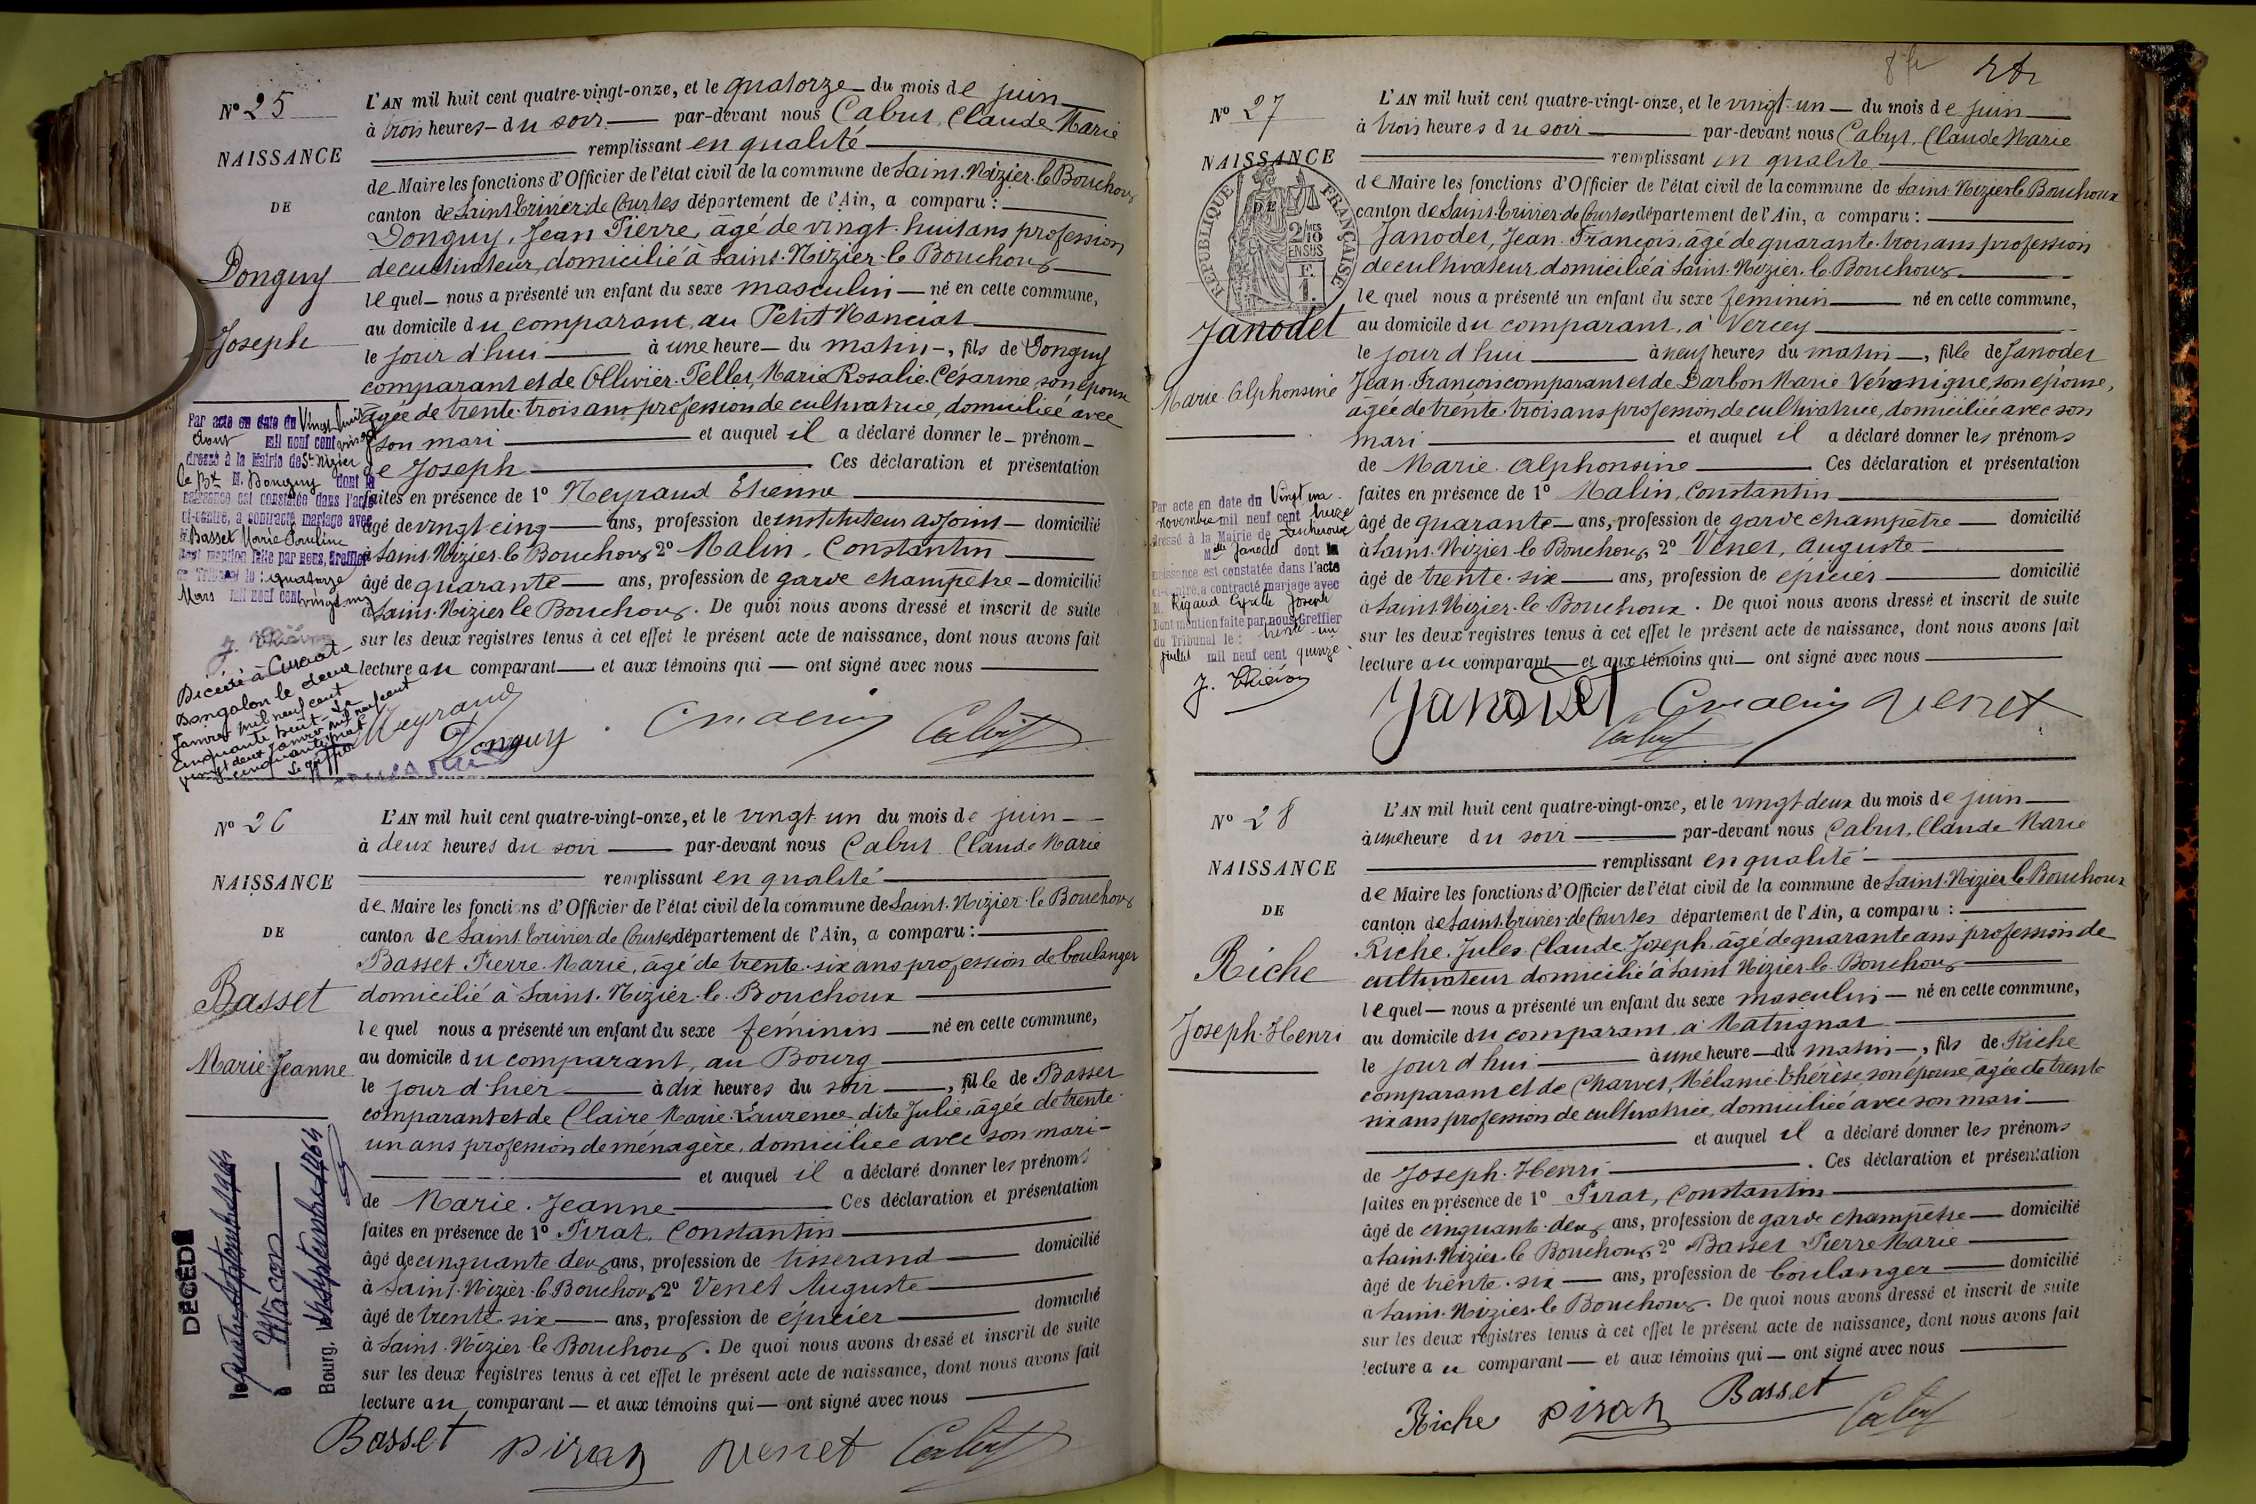 N° 25
NAISSANCE
DE
Donguy
Joseph
L'AN mil huit cent quatre-vingt-onze, et le quatorze du mois de juin
à trois heures du soir par-devant nous Cabut, Claude Marie
remplissant en qualité
de Maire les fonctions d'Officier de l'état civil de la commune de Saint-Nizier-le-Bouchoux
canton de Saint-Trivier-de-Courtes département de l'Ain, a comparu :
Donguy, Jean Pierre, âgé de vingt-huit ans profession
de cultivateur, domicilié à Saint-Nizier-le-Bouchoux
lequel nous a présenté un enfant du sexe masculin né en cette commune,
au domicile du comparant, au Petit Manciat
le jour d'hui à une heure du matin, fils de Donguy
comparant et de Ollivier-Pellet, Marie Rosalie Césarine, son épouse
âgée de trente-trois ans profession de cultivatrice, domiciliée avec
son mari et auquel il a déclaré donner le prénom
de Joseph Ces déclaration et présentation
faites en présence de 1° Neyraud Etienne
âgé de vingt-cinq ans, profession de instituteur adjoint domicilié
à Saint-Nizier-le-Bouchoux 2° Malin, Constantin
âgé de quarante ans, profession de garde champêtre domicilié
à Saint-Nizier le Bouchoux. De quoi nous avons dressé et inscrit de suite
sur les deux registres tenus à cet effet le présent acte de naissance, dont nous avons fait
lecture au comparant et aux témoins qui ont signé avec nous
Par acte en date du Vingt huit
Aout mil neuf cent vingt
dressé à la Mairie de St Nizier
le Bt M. Donguy dont la
naissance est constatée dans l'acte
ci-contre, a contracté mariage avec
Basset Marie Pauline
dont mention faite par nous, Greffier
du Tribunal le : quatorze
Mars mil neuf cent vingt
Décédé à Curciat-
Dongalon le deux
Janvier mil neuf cent
cinquante huit. Le
vingt deux Janvier mil neuf cent
cinquante huit
Le greffier
Neyraud
Donguy
Cmalin
Cabut
N° 26
NAISSANCE
DE
Basset
Marie-Jeanne
L'AN mil huit cent quatre-vingt-onze, et le vingt-un du mois de juin
à deux heures du soir par-devant nous Cabut Claude Marie
remplissant en qualité
de Maire les fonctions d'Officier de l'état civil de la commune de Saint-Nizier-le-Bouchoux
canton de Saint-Trivier-de-Courtes département de l'Ain, a comparu :
Basset Pierre-Marie, âgé de trente-six ans profession de boulanger
domicilié à Saint-Nizier-le-Bouchoux
lequel nous a présenté un enfant du sexe féminin né en cette commune,
au domicile du comparant, au Bourg
le jour d'hier à dix heures du soir, fille de Basset
comparant et de Claire Marie-Laurence dite Julie, âgée de trente-
un ans profession de ménagère, domiciliée avec son mari
et auquel il a déclaré donner les prénoms
de Marie-Jeanne Ces déclaration et présentation
faites en présence de 1° Pirat, Constantin
âgé de cinquante deux ans, profession de tisserand domicilié
à Saint-Nizier-le-Bouchoux 2° Venet Auguste
âgé de trente-six ans, profession de épicier domicilié
à Saint-Nizier-le-Bouchoux. De quoi nous avons dressé et inscrit de suite
sur les deux registres tenus à cet effet le présent acte de naissance, dont nous avons fait
lecture au comparant et aux témoins qui ont signé avec nous
DÉCÉDÉ
le quatre Septembre 1964
à Mâcon
Bourg, le Septembre 1964
Basset Pirat Venet Cabut
N° 27
NAISSANCE
DE
RÉPUBLIQUE FRANÇAISE
2/10 EN SUS
Janodet
Marie-Alphonsine
L'AN mil huit cent quatre-vingt-onze, et le vingt-un du mois de juin
à trois heures du soir par-devant nous Cabut, Claude Marie
remplissant en qualité
de Maire les fonctions d'Officier de l'état civil de la commune de Saint-Nizier-le-Bouchoux
canton de Saint-Trivier-de-Courtes département de l'Ain, a comparu :
Janodet, Jean-François, âgé de quarante-trois ans profession
de cultivateur, domicilié à Saint-Nizier-le-Bouchoux
lequel nous a présenté un enfant du sexe féminin né en cette commune,
au domicile du comparant, à Vercey
le jour d'hui à neuf heures du matin, fille de Janodet
Jean-François comparant et de Darbon Marie Véronique, son épouse,
âgée de trente-trois ans profession de cultivatrice, domiciliée avec son
mari et auquel il a déclaré donner les prénoms
de Marie-Alphonsine Ces déclaration et présentation
faites en présence de 1° Malin, Constantin
âgé de quarante ans, profession de garde champêtre domicilié
à Saint-Nizier-le-Bouchoux 2° Venet, Auguste
âgé de trente-six ans, profession de épicier domicilié
à Saint-Nizier-le-Bouchoux. De quoi nous avons dressé et inscrit de suite
sur les deux registres tenus à cet effet le présent acte de naissance, dont nous avons fait
lecture au comparant et aux témoins qui ont signé avec nous
Par acte en date du Vingt un
novembre mil neuf cent treize
dressé à la Mairie de Lescheroux
Melle Janodet dont la
naissance est constatée dans l'acte
ci-contre, a contracté mariage avec
M. Rigaud Cyrille Joseph
Dont mention faite par nous Greffier
du Tribunal le : trente-un
juillet mil neuf cent quinze
Janodet Cmalin Venet
Cabut
N° 28
NAISSANCE
DE
Riche
Joseph-Henri
L'AN mil huit cent quatre-vingt-onze, et le vingt-deux du mois de juin
à une heure du soir par-devant nous Cabut, Claude Marie
remplissant en qualité
de Maire les fonctions d'Officier de l'état civil de la commune de Saint-Nizier-le-Bouchoux
canton de Saint-Trivier-de-Courtes département de l'Ain, a comparu :
Riche, Jules Claude Joseph, âgé de quarante ans profession de
cultivateur domicilié à Saint-Nizier-le-Bouchoux
lequel nous a présenté un enfant du sexe masculin né en cette commune,
au domicile du comparant, à Matrignat
le jour d'hui à une heure du matin, fils de Riche
comparant et de Charvet, Mélanie-Thérèse, son épouse, âgée de trente-
six ans profession de cultivatrice, domiciliée avec son mari
et auquel il a déclaré donner les prénoms
de Joseph-Henri. Ces déclaration et présentation
faites en présence de 1° Pirat, Constantin
âgé de cinquante-deux ans, profession de garde champêtre domicilié
à Saint-Nizier-le-Bouchoux 2° Basset Pierre Marie
âgé de trente-six ans, profession de boulanger domicilié
à Saint-Nizier-le-Bouchoux. De quoi nous avons dressé et inscrit de suite
sur les deux registres tenus à cet effet le présent acte de naissance, dont nous avons fait
lecture au comparant et aux témoins qui ont signé avec nous
Riche Pirat Basset Cabut